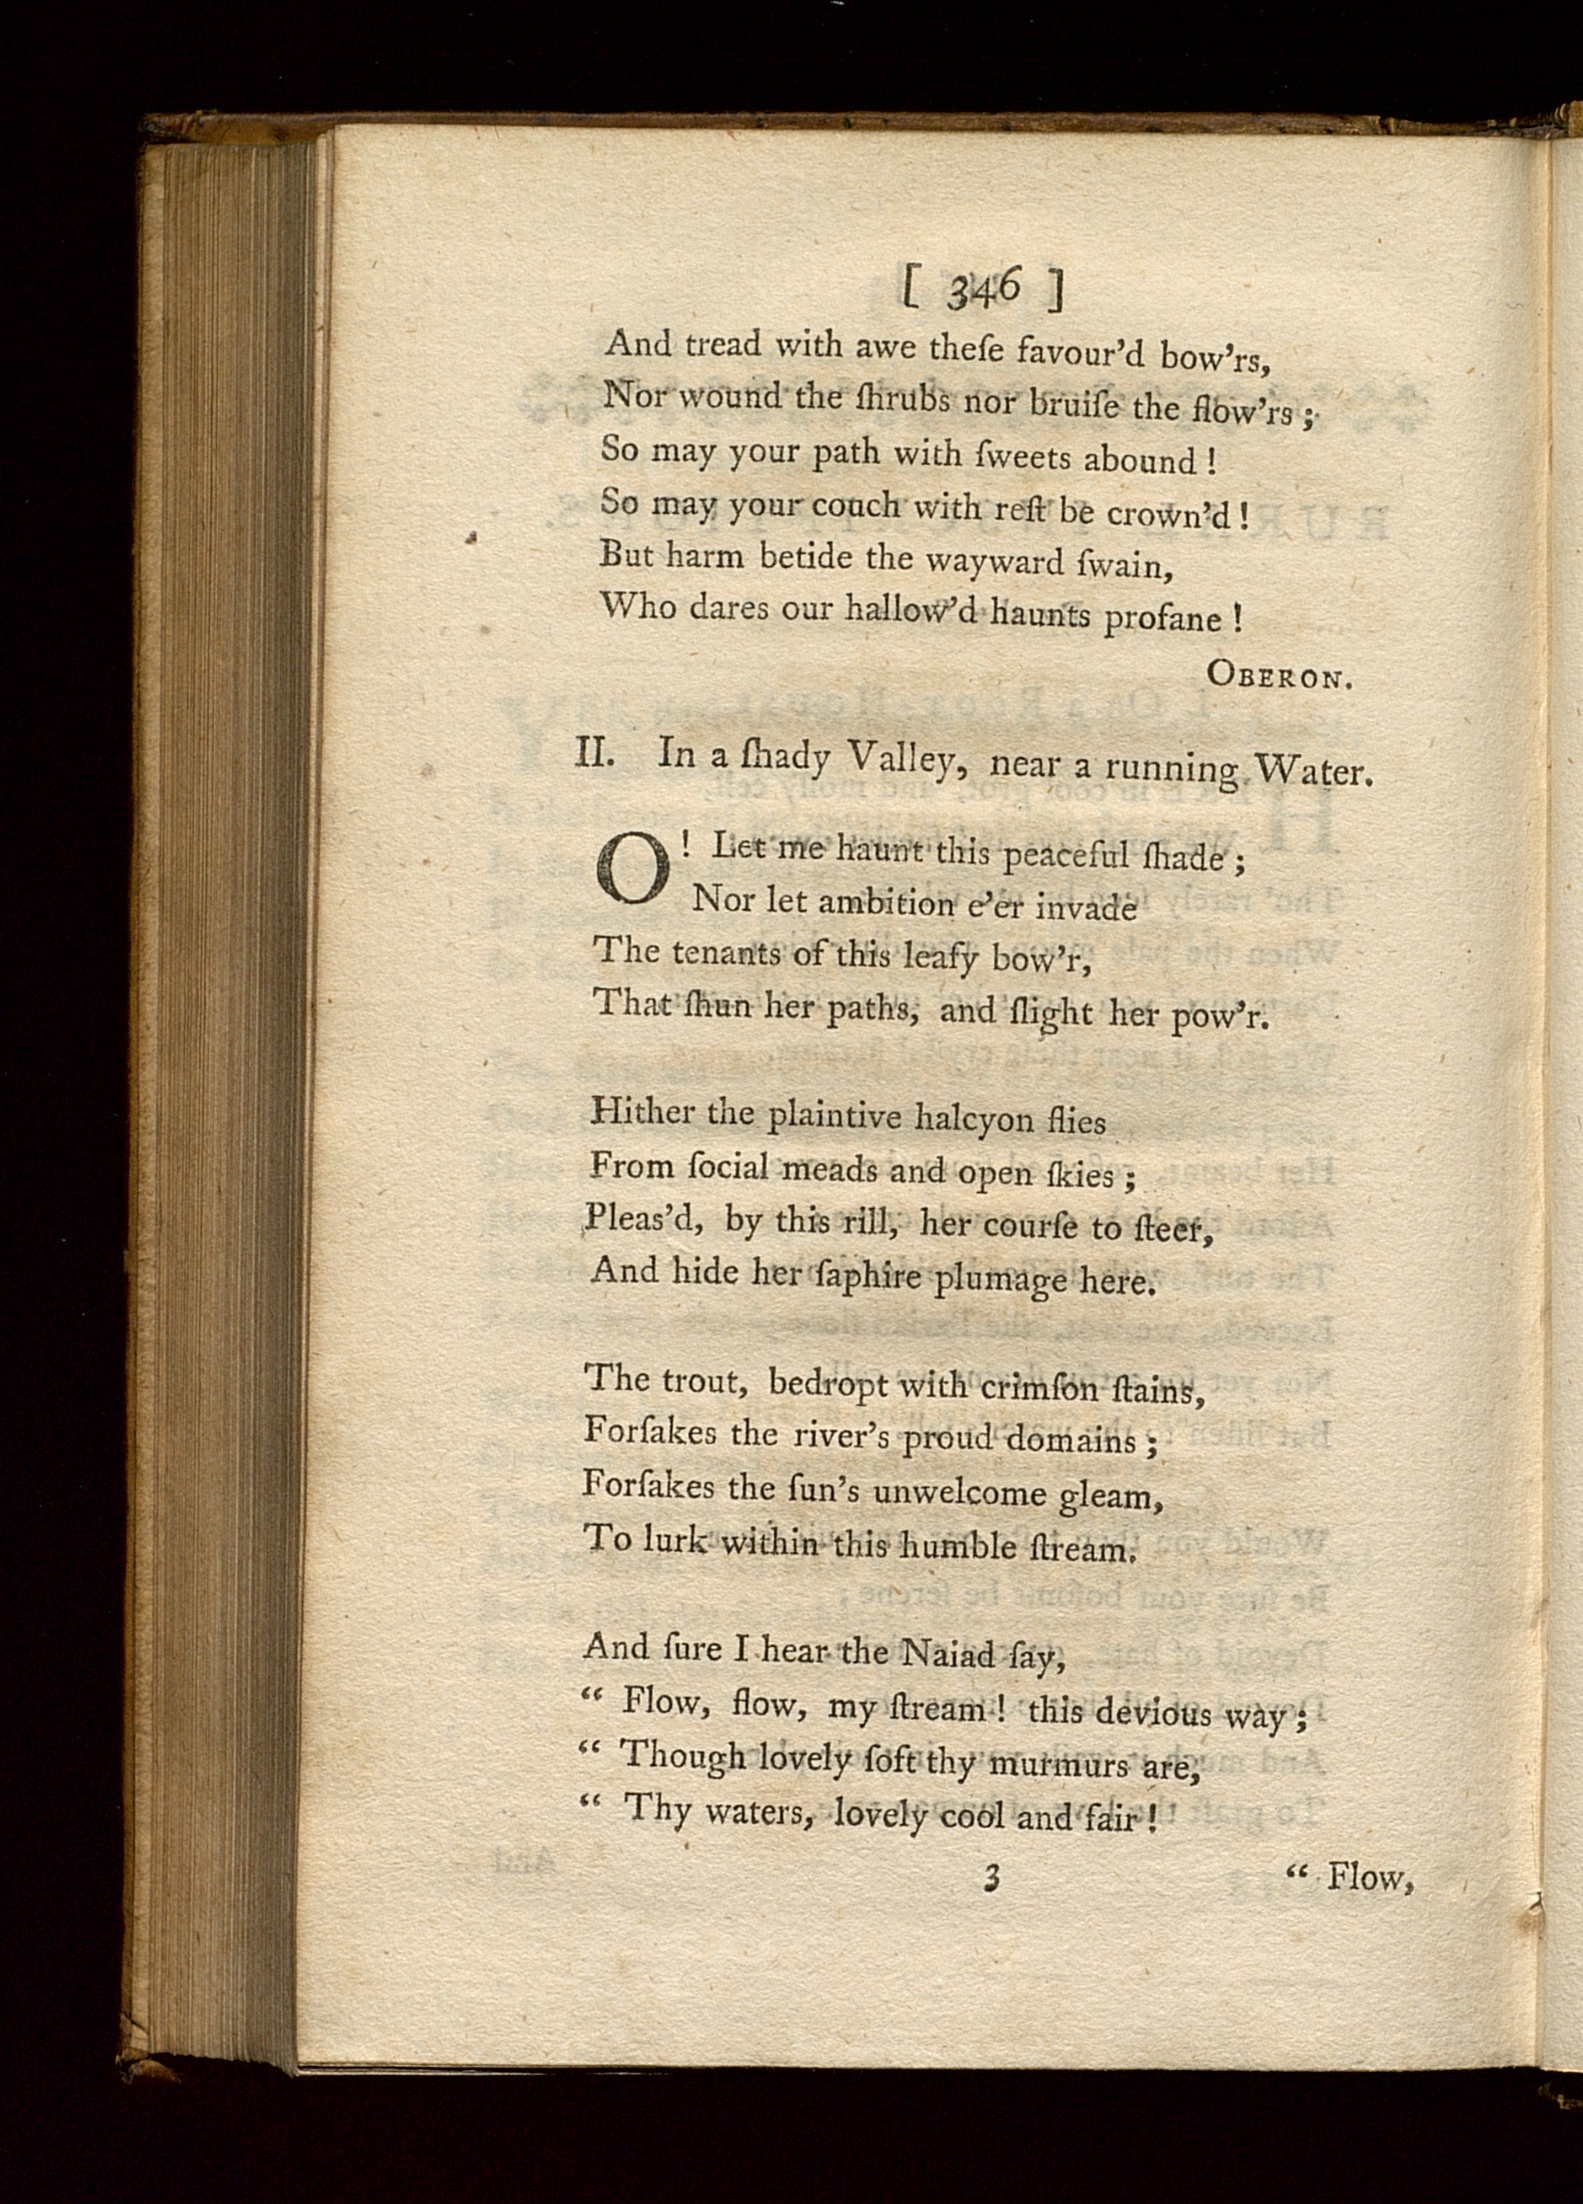 [ 346 ]
And tread with awe theſe favour'd bow'rs,
Nor wound the ſhrubs nor bruiſe the flow'rs;
So may your path with ſweets abound!
So may your couch with reſt be crown'd!
But harm betide the wayward ſwain,
Who dares our hallow'd haunts profane!
OBERON.
II. In a ſhady Valley, near a running Water.
O! Let me haunt this peaceful ſhade;
Nor let ambition e'er invade
The tenants of this leafy bow'r,
That ſhun her paths, and ſlight her pow'r.
Hither the plaintive halcyon flies
From ſocial meads and open ſkies;
Pleas'd, by this rill, her courſe to ſteer,
And hide her ſaphire plumage here.
The trout, bedropt with crimſon ſtains,
Forſakes the river's proud domains;
Forſakes the ſun's unwelcome gleam,
To lurk within this humble ſtream.
And ſure I hear the Naiad ſay,
“ Flow, flow, my ſtream! this devious way;
“ Though lovely ſoft thy murmurs are,
“ Thy waters, lovely cool and fair!
3 “ Flow,